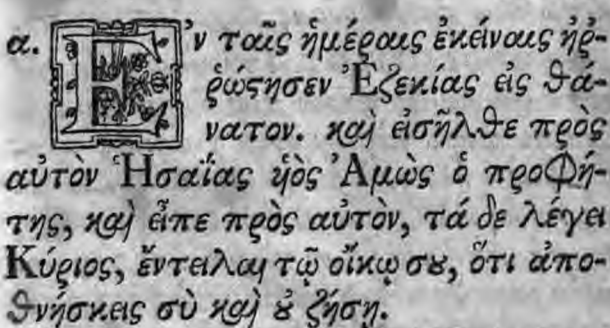 α. Ἐν ταῖς ἡμέραις ἐκείναις ἠῤ-
ῥώςησεν Ἐζεκίας εἰς θά-
νατον. καὶ εἰσῆλθε πρὸς
αὐτὸν Ἡσαΐας ὑὸς Ἀμὼς ὁ προφή-
της, καὶ εἶπε πρὸς αὐτὸν, τά δε λέγει
Κύριος, ἔντειλαι τῷ οἴκῳ σȣ, ὅτι ἀπο-
θνήσκεις σὺ καὶ ȣ̓ ζήσῃ.